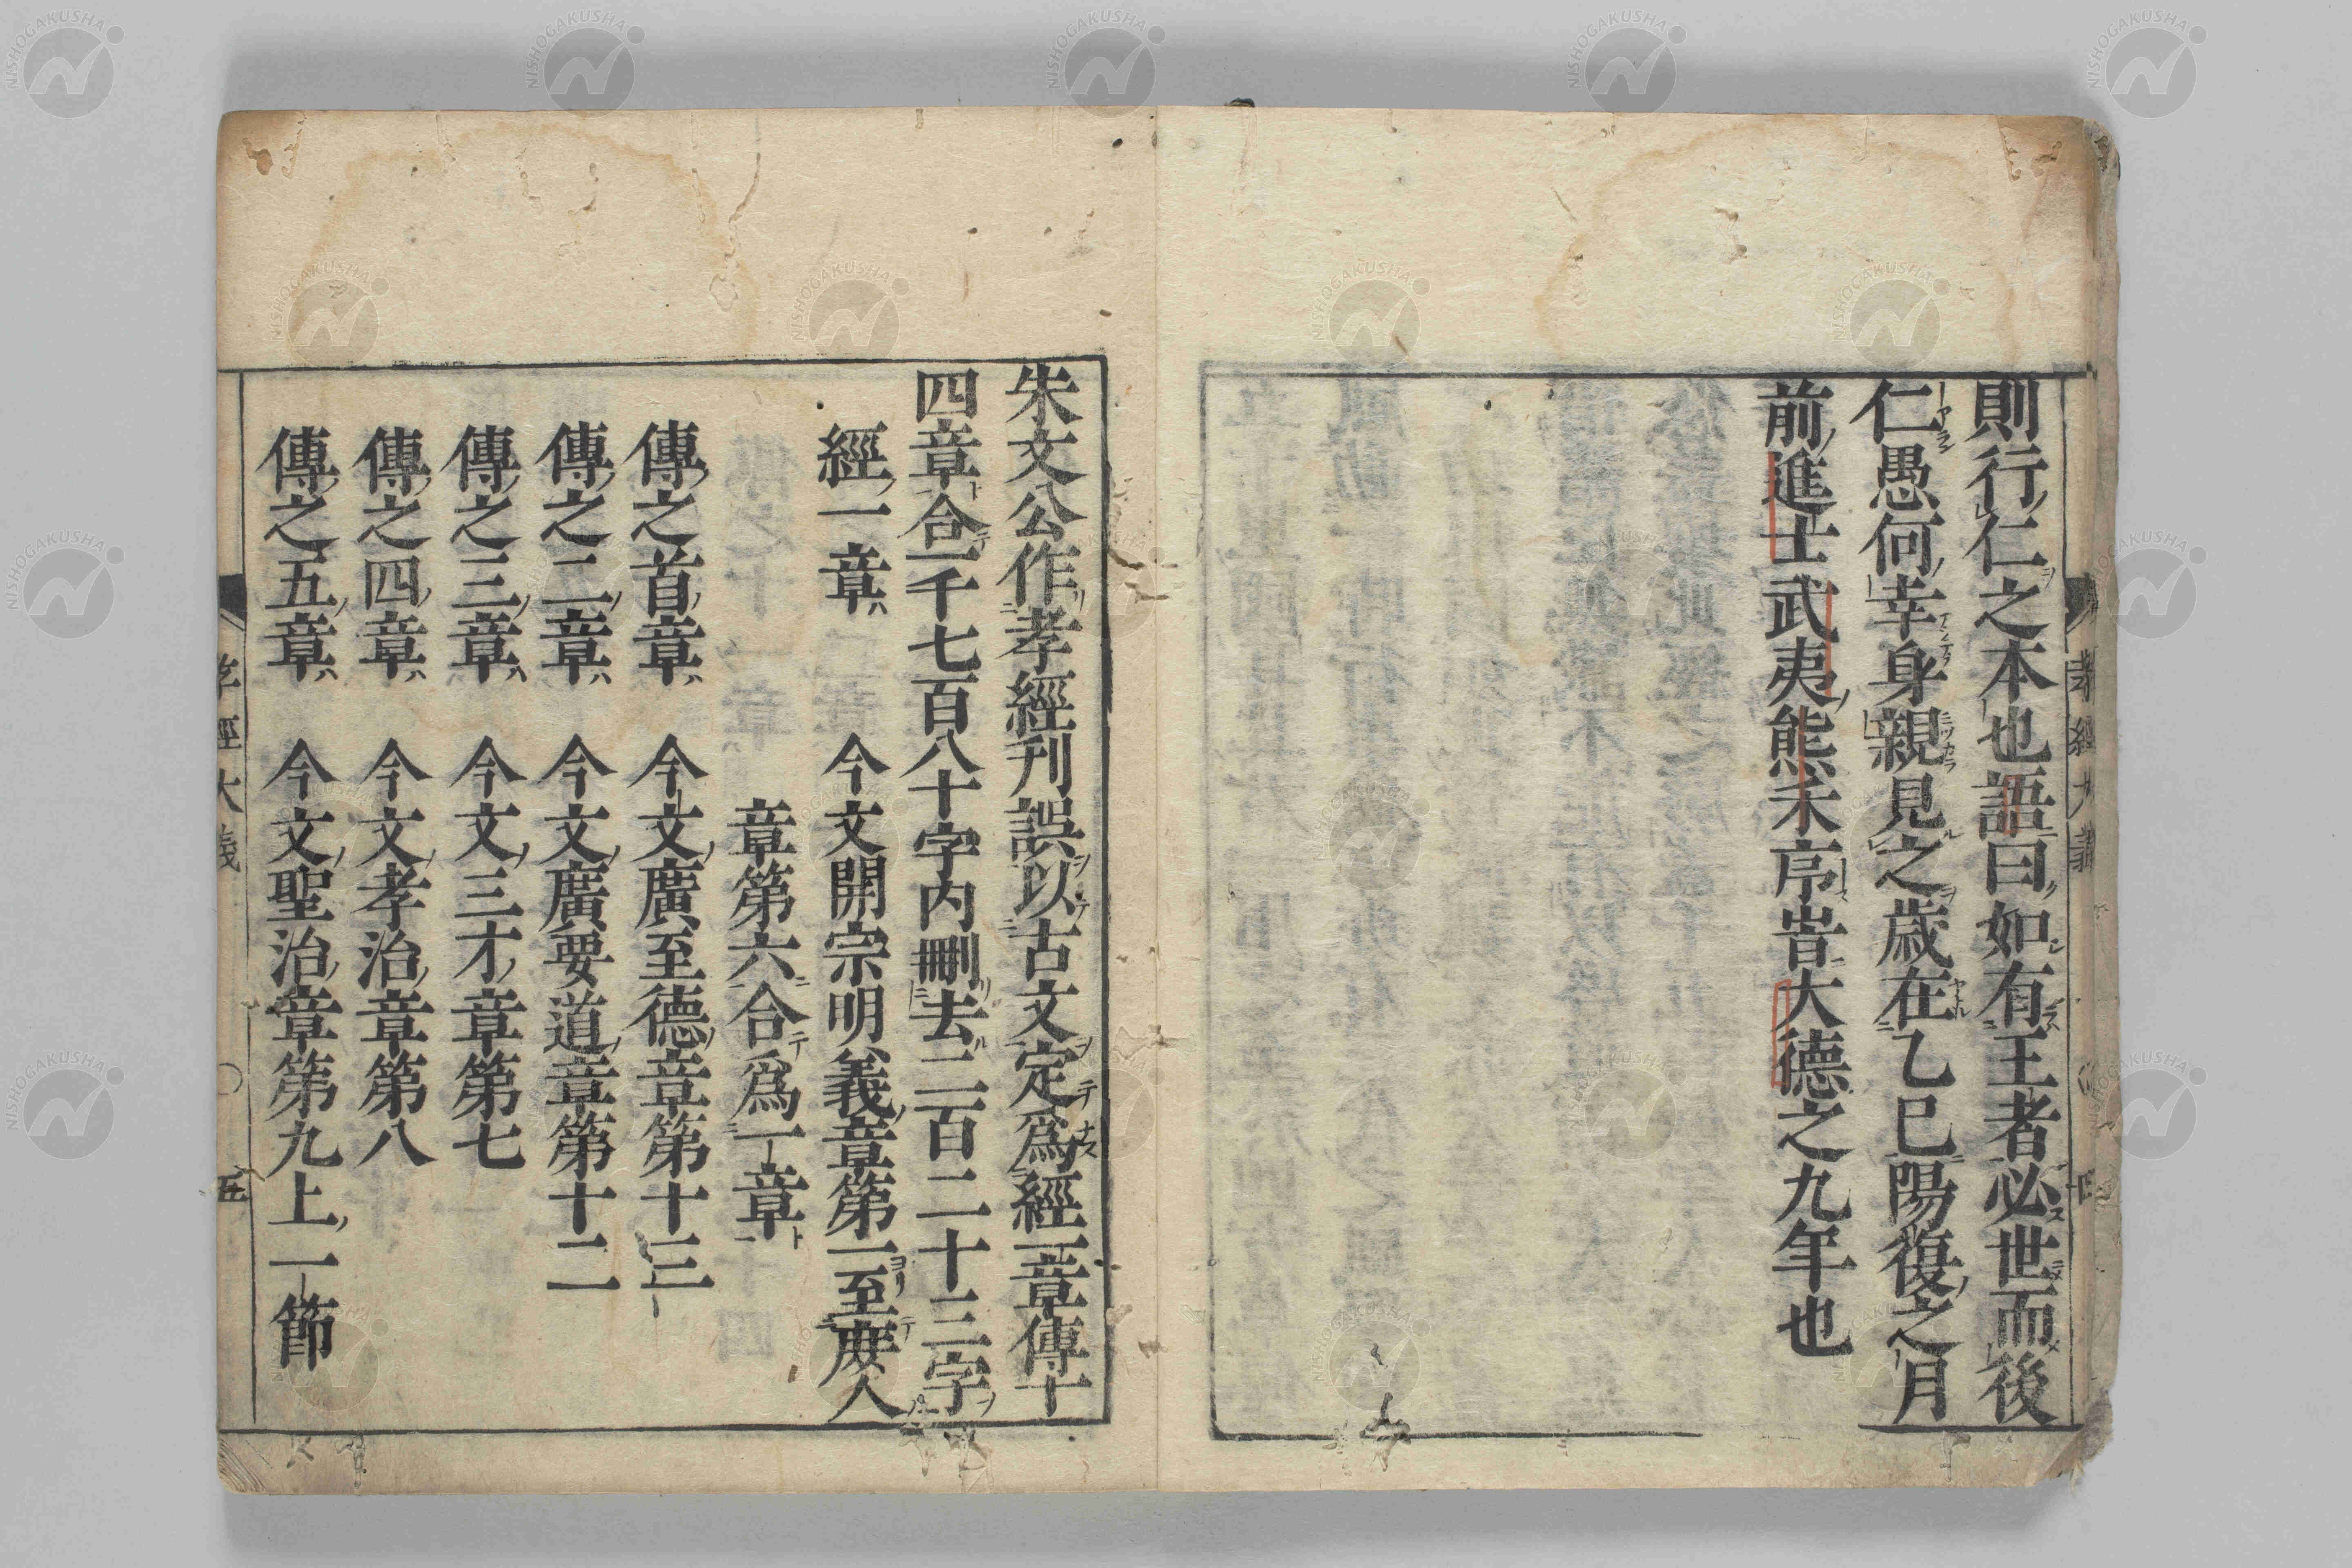 則行仁之本也語曰如有王者必世而後
仁愚何幸身親見之歳在乙巳陽復之月
前進士武夷熊禾序旹大德之九年也
朱文公作孝經刊誤以古文定爲經一章傳十
四章合一千七百八十字内刪去二百二十三字
經一章 今文開宗明義章第一至庶人
章第六合爲一章
傳之首章 今文廣至德章第十三
傳之二章 今文廣要道章第十二
傳之三章 今文三才章第七
傳之四章 今文孝治章第八
傳之五章 今文聖治章第九上一節
孝經大義 五
NISHOGAKUSHA